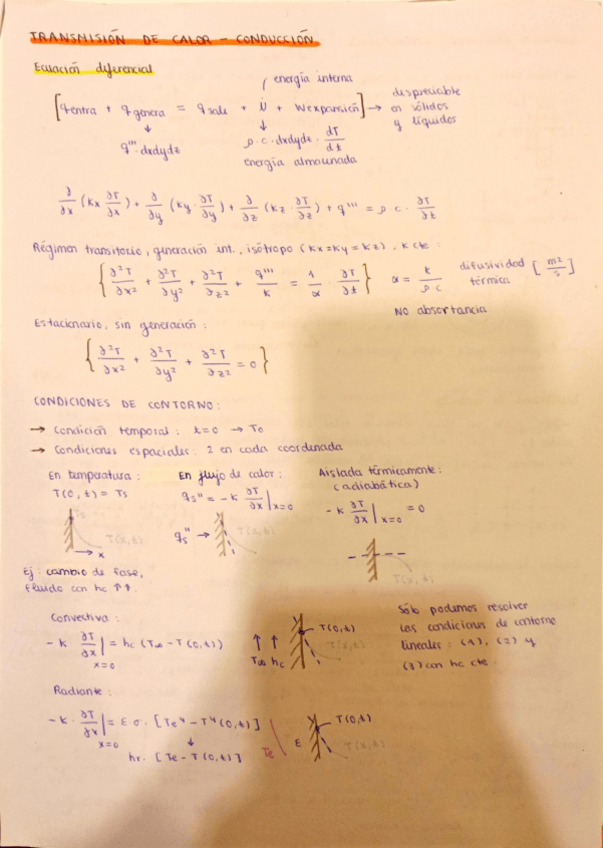 TRANSMISIÓN DE CALOR - CONDUCCIÓN
Ecuación diferencial
energía interna
[q entra + q genera = q sale + U̇ + W expansión] → despreciable en sólidos y líquidos
↓ ↓
q'''·dxdydz ρ·c·dxdydz·dT/dt
energía almacenada
∂/∂x (Kx ∂T/∂x) + ∂/∂y (Ky·∂T/∂y) + ∂/∂z (Kz·∂T/∂z) + q''' = ρ·c·∂T/∂t
Régimen transitorio, generación int., isótropo (Kx=Ky=Kz), K cte:
{∂²T/∂x² + ∂²T/∂y² + ∂²T/∂z² + q'''/K = 1/α · ∂T/∂t} α = K/ρ·c difusividad térmica [m²/s]
NO absortancia
Estacionario, sin generación:
{∂²T/∂x² + ∂²T/∂y² + ∂²T/∂z² = 0}
CONDICIONES DE CONTORNO:
→ Condición temporal: t=0 → T₀
→ Condiciones espaciales: 2 en cada coordenada
En temperatura: En flujo de calor: Aislada térmicamente:
(adiabática)
T(0,t) = Ts qs'' = -K ∂T/∂x|x=0 -K ∂T/∂x|x=0 = 0
Ts
T(x,t) x qs'' → T(x,t)
T(x,t)
Ej: cambio de fase,
fluido con hc ↑↑.
Convectiva:
-K ∂T/∂x|x=0 = hc (T∞ - T(0,t)) ↑ ↑ T∞ hc T(0,t) T(x,t)
Sólo podemos resolver
las condiciones de contorno
lineales: (1), (2) y
(3) con hc cte.
Radiante:
-K·∂T/∂x|x=0 = ε·σ·[Te⁴ - T⁴(0,t)]
↓
hr·[Te - T(0,t)] Te ε T(0,t) T(x,t)